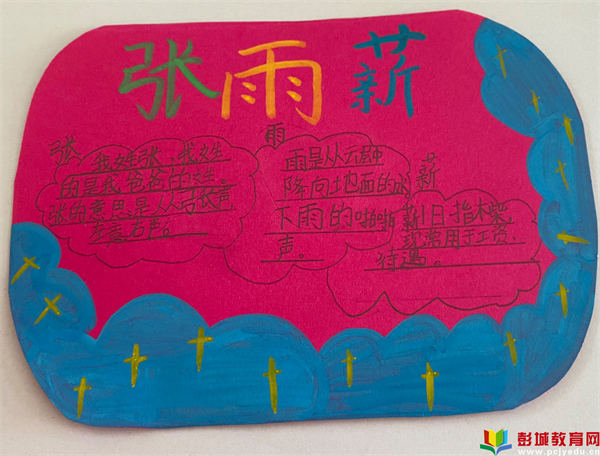 张雨薪
张
我姓张,我姓
的是我爸爸的姓。
张的意思是从弓长声,
左意右声。
雨
雨是从云中
降向地面的水
下雨的啪啪
声。
薪
薪旧指木柴,
现常用于工资,
待遇。
彭城教育网
www.pcjyedu.cn